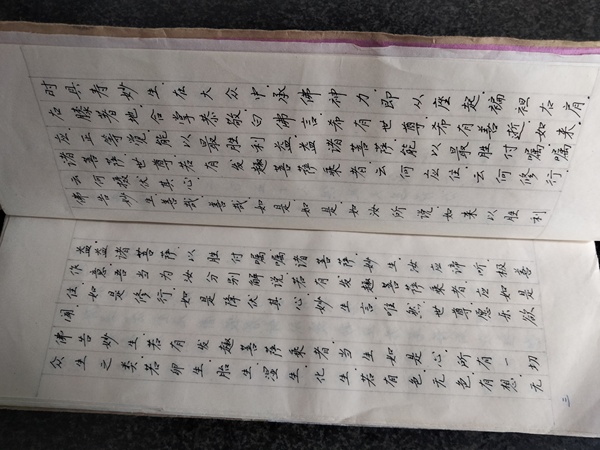 时具寿妙生.在大众中.承佛神力.即从座起.褊袒右肩.
右膝著地.合掌恭敬.白佛言.希有世尊.希有善逝.如来.
应.正等觉.能以最胜利益益诸菩萨.能以最胜付嘱嘱
诸菩萨.世尊.若有发趣菩萨乘者.云何应住.云何修行.
云何摄伏其心.
佛告妙生.善哉善哉.如是如是.如汝所说.如来以胜利
益.益诸菩萨.以胜付嘱.嘱诸菩萨.妙生.汝应谛听.极善
作意.吾当为汝分别解说.若有发趣菩萨乘者.应如是
住.如是修行.如是降伏其心.妙生言.唯然.世尊.愿乐欲
闻
佛告妙生.若有发趣菩萨乘者.当生如是心.所有一切
众生之类.若卵生.胎生.湿生.化生.若有色.无色.有想.无
三